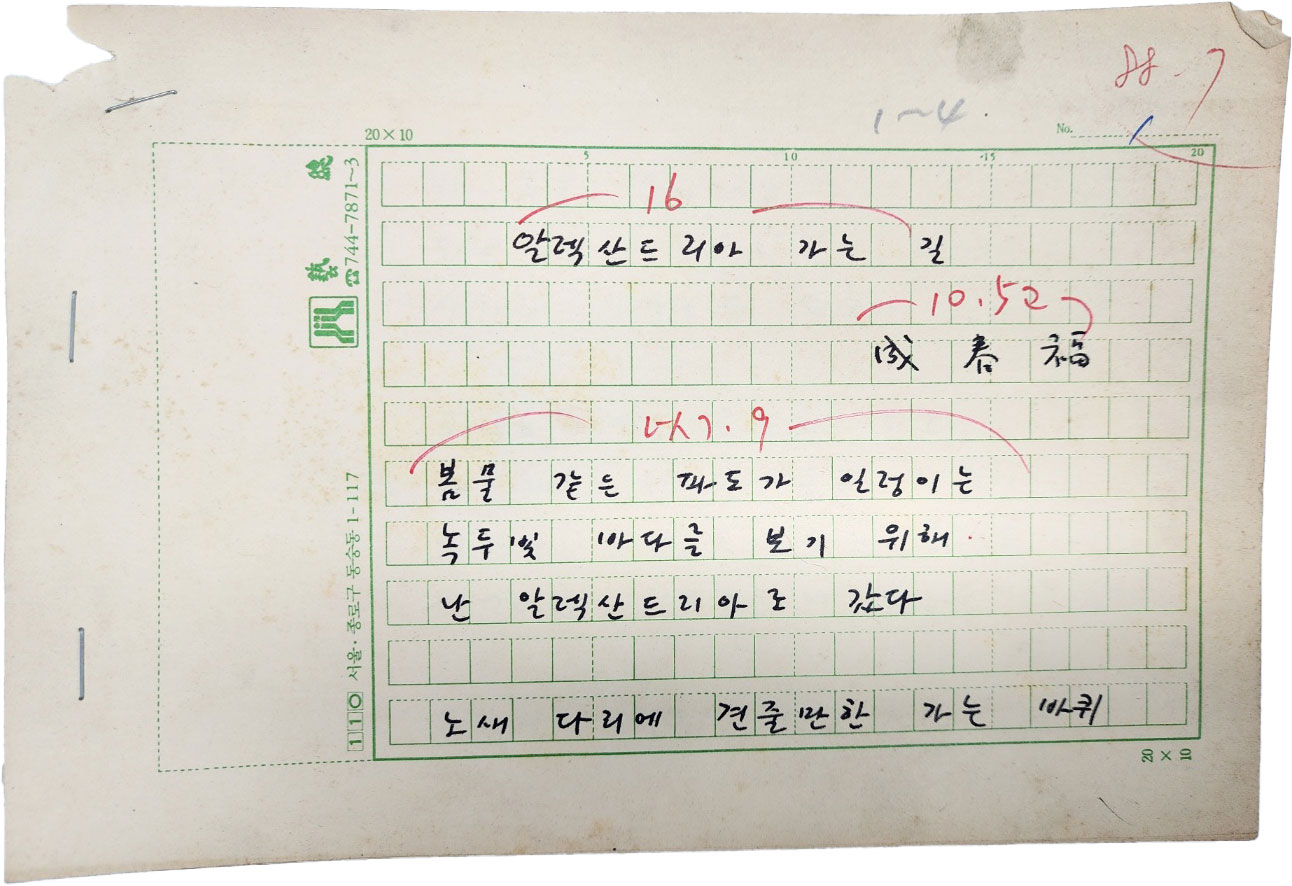 88.7
1~4
No.
20×10
5 10 15 20
16
알렉산드리아 가는 길
10.5고
成春福
9
봄물 같은 파도가 일렁이는
녹두빛 바다를 보기 위해
난 알렉산드리아로 갔다
노새 다리에 견줄만한 가는 바퀴
20×10
總
藝
☎744-7871~3
110 서울·종로구 동숭동 1-117